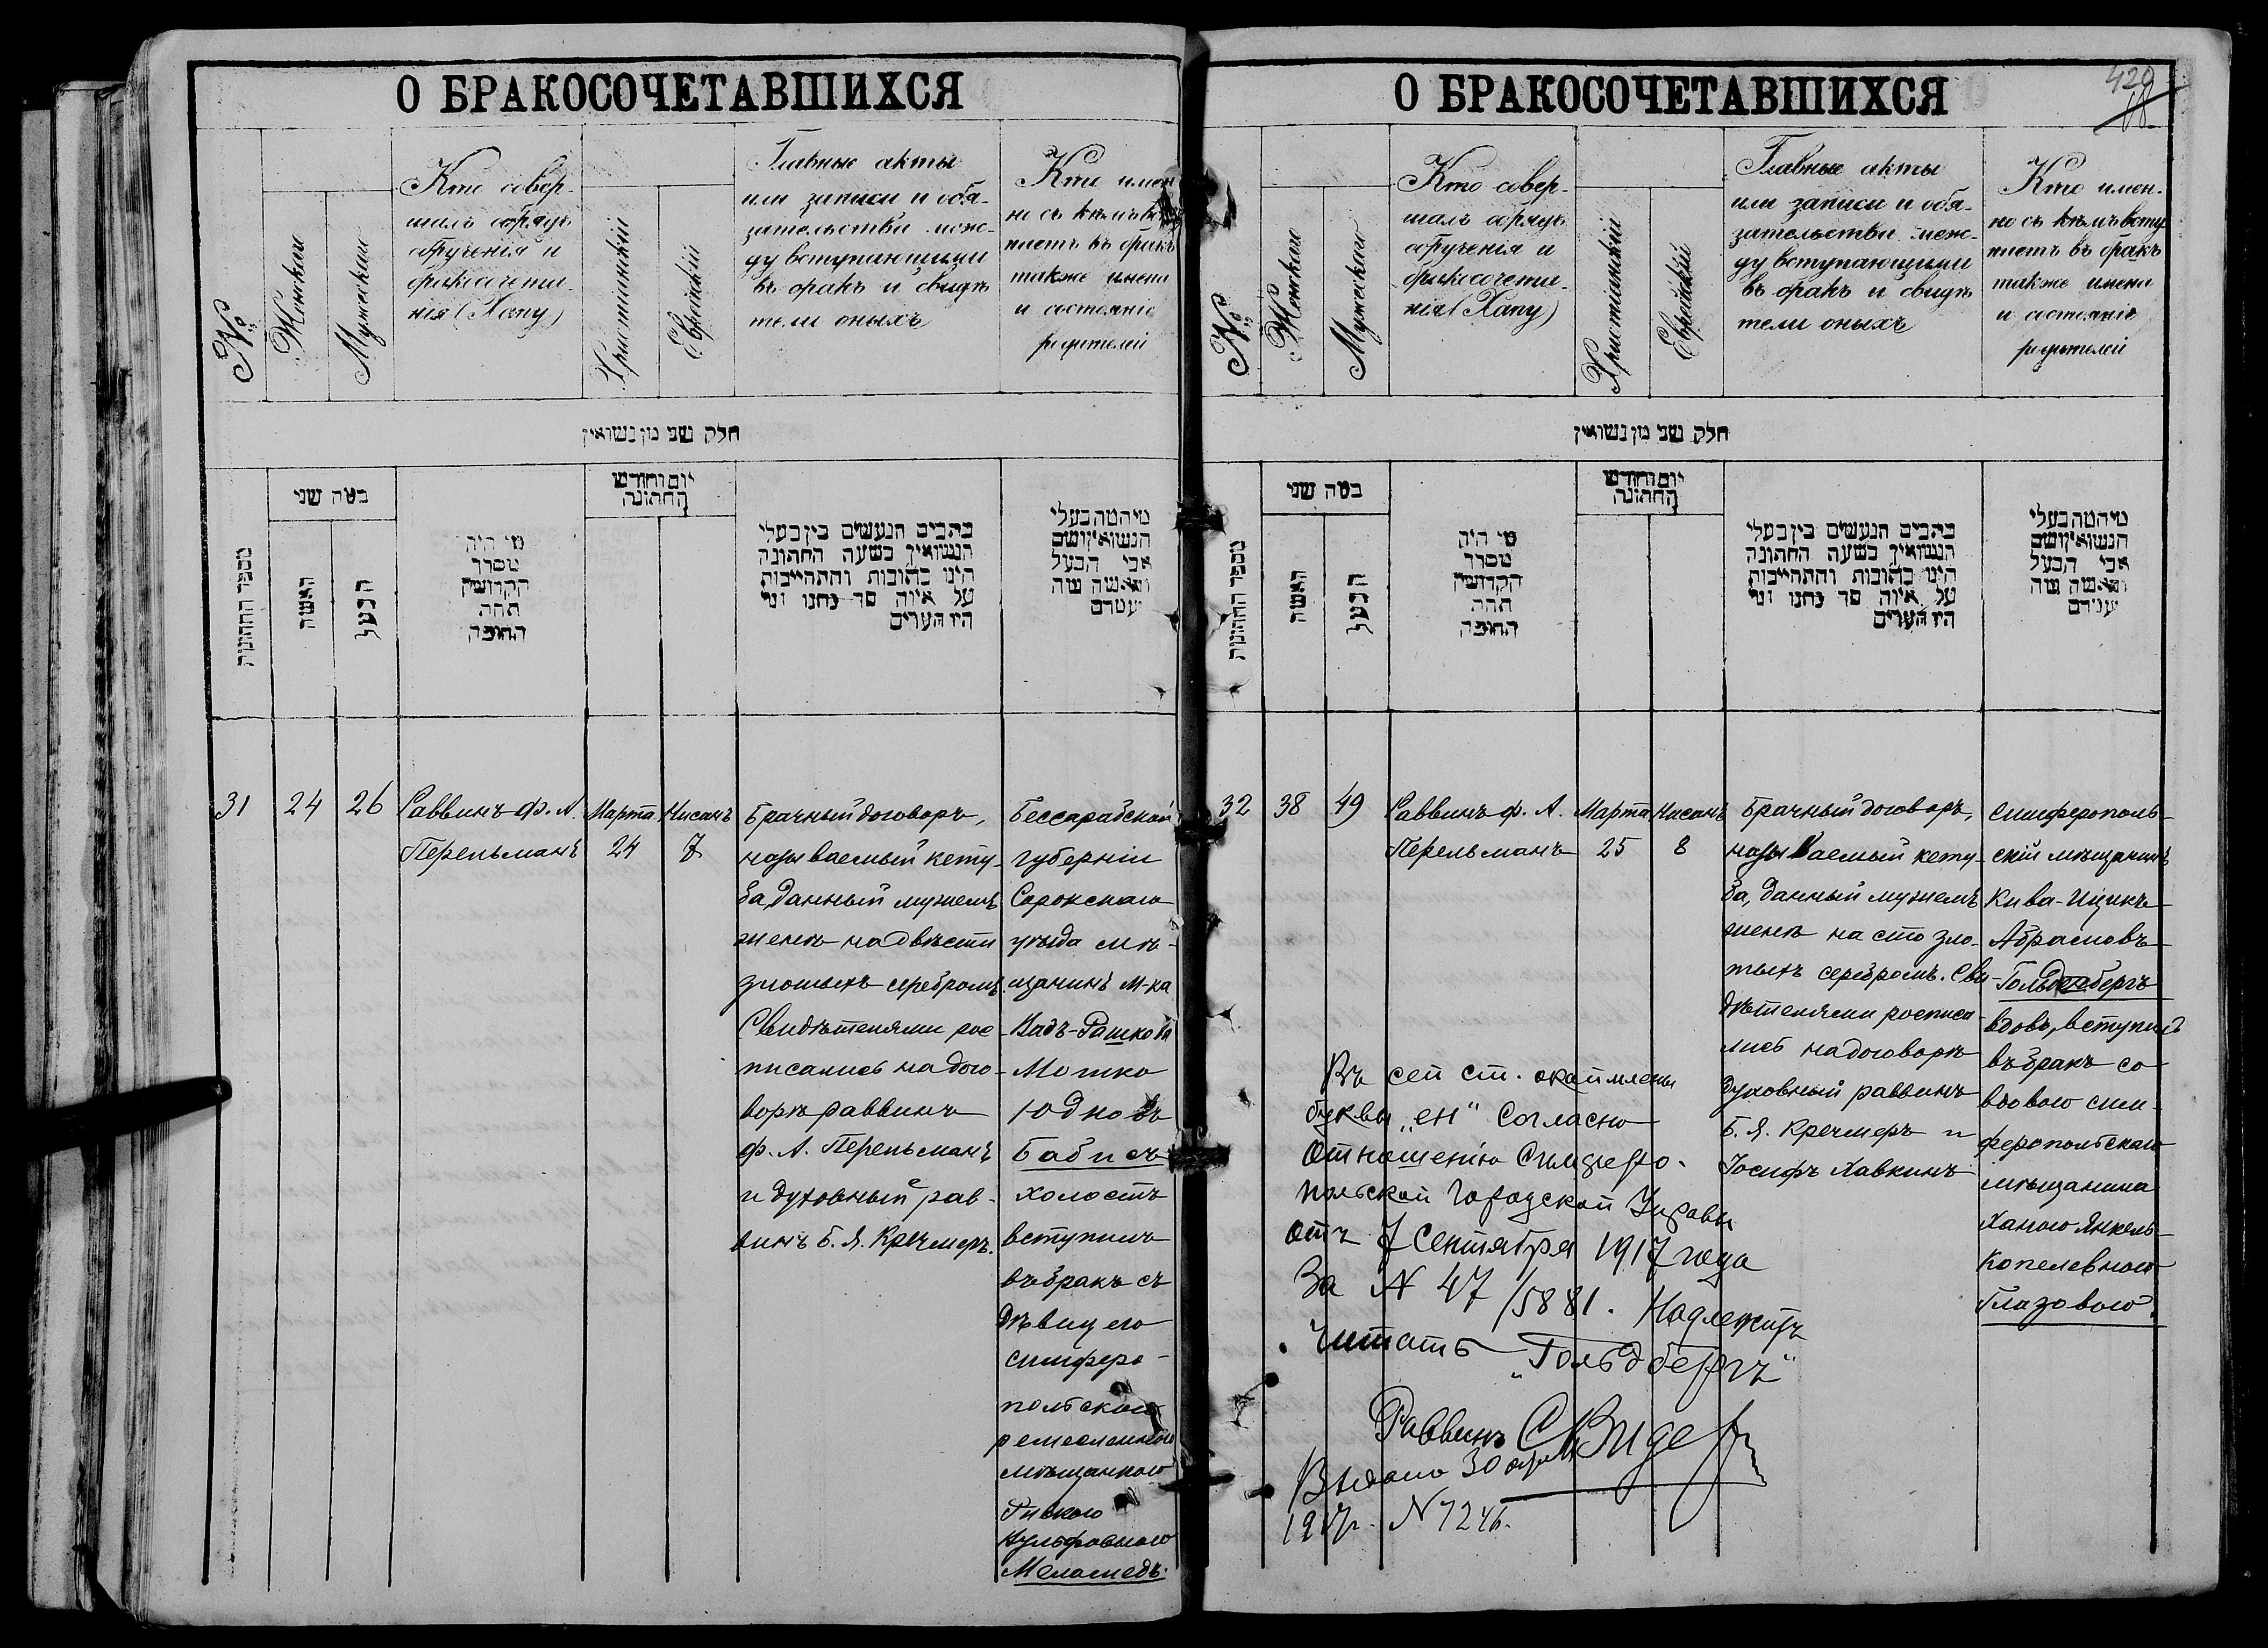 О БРАКОСОЧЕТАВШИХСЯ
№
Женского
Мужеского
Кто совер-
шалъ обрядъ
обрученія и
бракосочета-
нія (Хапу)
Христіанскій
Еврейскій
Главные акты
или записи и обя-
зательства меж-
ду вступающими
въ бракъ и свидѣ
тели оныхъ
Кто имен
но съ кѣмъ всту
паетъ въ бракъ
также имена
и состояніе
родителей
חלק שני מן נשואין
מספר החתונות
כמה שני
האשה
הבעל
מי היה
מסדר
הקדושין
תחת
החופה
יום וחודש
החתונה
כתבים הנעשים בין בעלי
הנשואין בשעה החתונה
היינו כתובות והתחייבות
על איזה סך נתנו ומי
היו העדים
מי המה בעלי
הנשואין ושם
אבי הבעל
והאשה מה
31
24
26
Раввинъ Ф. А.
Перельманъ
Марта
24
Нисанъ
7
Брачный договоръ,
называемый кету-
ба, данный мужемъ
женѣ на двѣсти
злотыхъ серебромъ.
Свидѣтелями рос-
писались на дого-
ворѣ раввинъ
Ф. А. Перельманъ
и духовный рав-
винъ Б. Я. Кречмеръ.
Бессарабской
губерніи
Сорокскаго
уѣзда мѣ-
щанинъ м-ка
Вадъ-Рашкова
Мошко
Юдковъ
Бабисъ
холостъ
вступилъ
въ бракъ съ
дѣвицею
симферо-
польскою
ремесленною
мѣщанкою
Ривкою
Вульфовною
Меламедъ.
О БРАКОСОЧЕТАВШИХСЯ
429
68
№
Женского
Мужеского
Кто совер-
шалъ обрядъ
обрученія и
бракосочета-
нія (Хапу)
Христіанскій
Еврейскій
Главные акты
или записи и обя-
зательства меж-
ду вступающими
въ бракъ и свидѣ
тели оныхъ
Кто имен-
но съ кѣмъ всту
паетъ въ бракъ
также имена
и состояніе
родителей
חלק שני מן נשואין
מספר החתונות
כמה שני
האשה
הבעל
מי היה
מסדר
הקדושין
תחת
החופה
יום וחודש
החתונה
כתבים הנעשים בין בעלי
הנשואין בשעה החתונה
היינו כתובות והתחייבות
על איזה סך נתנו ומי
היו העדים
מי המה בעלי
הנשואין ושם
אבי הבעל
והאשה מה
32
38
49
Раввинъ Ф. А.
Перельманъ
Марта
25
Нисанъ
8
Брачный договоръ,
называемый кету-
ба, данный мужемъ
женѣ на сто зло-
тыхъ серебромъ. Сви-
дѣтелями росписа-
лись на договорѣ
духовный раввинъ
Б. Я. Кречмеръ и
Іосифъ Хавкинъ
Симферополь-
скій мѣщанинъ
Кива-Ицикъ
Абрамовъ
Гольденбергъ
вдовъ, вступилъ
въ бракъ со
вдовою сим-
феропольскаго
мѣщанина
Ханою Янкель-
Копелевною
Глазовою.
Въ сей ст. окаймлены
буквы „ен" согласно
отношенію Симферо-
польской Городской Управы
отъ 7 Сентября 1917 года
за № 47/5881. Надлежитъ
читать „Гольдбергъ"
Раввинъ
Выдано 30
1917г. № 1246.